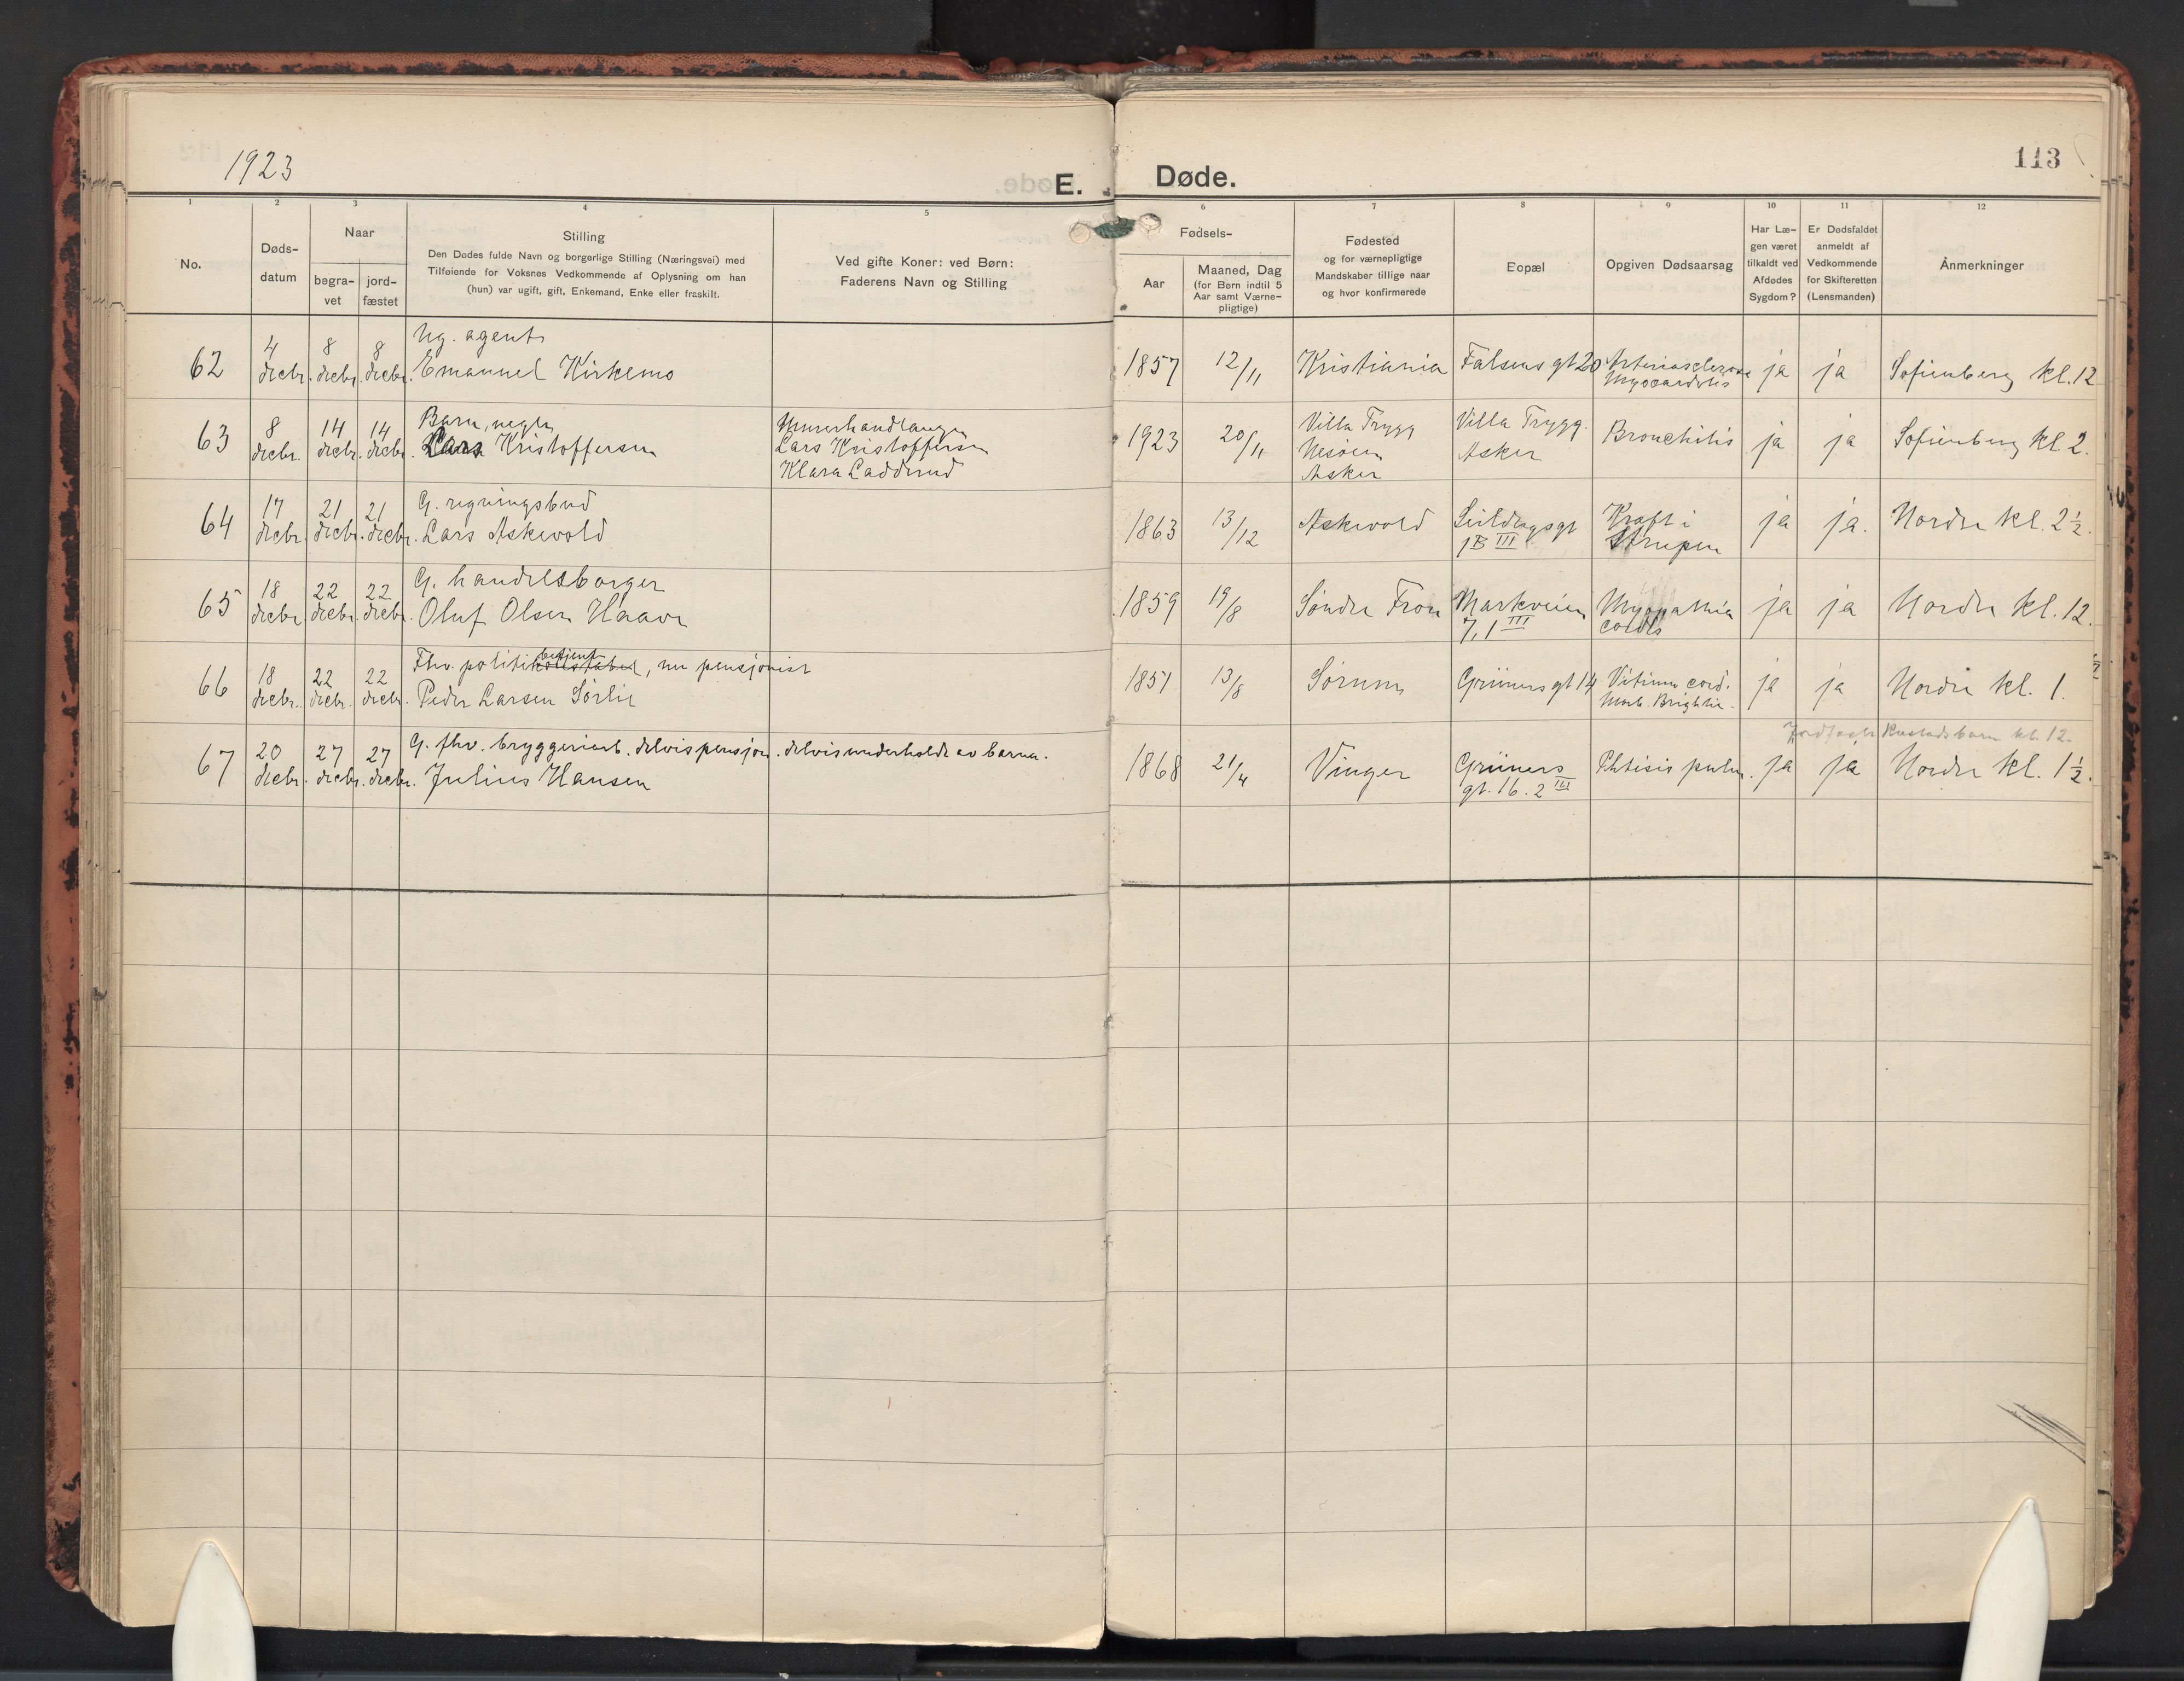 1923
E. Døde.
113
1 2 3 4 5 6 7 8 9 10 11 12
No.
Døds-
datum
Naar
begra-
vet
jord-
fæstet
Stilling
Den Dødes fulde Navn og borgerlige Stilling (Næringsvei) med
Tilføiende for Voksnes Vedkommende af Oplysning om han
(hun) var ugift, gift, Enkemand, Enke eller fraskilt.
Ved gifte Koner: ved Børn:
Faderens Navn og Stilling
Fødsels-
Aar
Maaned, Dag
(for Børn indtil 5
Aar samt Værne-
pligtige)
Fødested
og for værnepligtige
Mandskaber tillige naar
og hvor konfirmerede
Bopæl
Opgiven Dødsaarsag
Har Læ-
gen været
tilkaldt ved
Afdødes
Sygdom?
Er Dødsfaldet
anmeldt af
Vedkommende
for Skifteretten
(Lensmanden)
Anmerkninger
62
4 decbr.
8 decbr.
8 decbr.
Ug. agent
Emanuel Kirkemo
1857
12/11
Kristiania
Falsens gt 20
Arteriosclerose
Myocarditis
ja
ja
Sofienberg kl. 12
63
8 decbr.
14 decbr.
14 decbr.
Barn, uegte,
Lars Kristoffersen
Murerhandlanger
Lars Kristoffersen
Klara Laddrud
1923
20/11
Villa Trygg
Nesøen
Asker
Villa Trygg.
Asker
Bronchitis
ja
ja
Sofienberg kl 2.
64
17 decbr.
21 decbr.
21 decbr.
G. regningsbud
Lars Askevold
1863
13/12
Askevold
Seildugsgt
1B III
Kræft i
Strupen
ja
ja.
Nordre kl. 2½.
65
18 decbr.
22 decbr.
22 decbr.
G. handelsborger
Oluf Olsen Haave
1859
19/8
Søndre Fron
Markveien
7, 1 III
Myopathia
cordis
ja
ja
Nordre kl. 12.
66
18 decbr.
22 decbr.
22 decbr.
betjent
Fhv. politikonstabel, nu pensjonist
Peder Larsen Sørlie
1857
13/8
Sørum
Grüners gt 14
Vitium cord.
Morb. Brightii.
ja
ja
Nordre kl. 1.
67
20 decbr.
27 decbr.
27 decbr.
G. fhv. bryggeriarb. delvis pensjon. delvis underholdt av barna.
Julius Hansen
1868
21/4
Vinger
Grüners
gt. 16. 2 III
Phtisis pulm.
ja
ja
kl. 12.
Nordre kl. 1½.